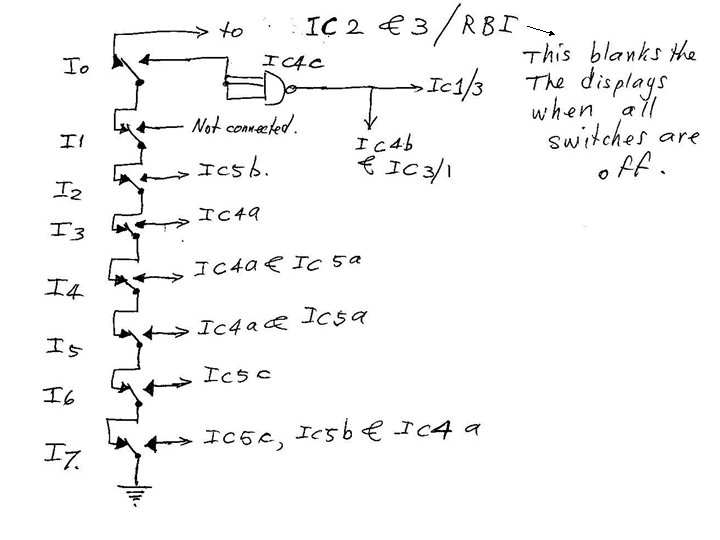 to IC2 & 3 / RBI
This blanks the
The displays
when all
switches are
off.
I0
IC4c
IC1/3
IC4b
& IC3/1
I1
Not connected.
I2
IC5b.
I3
IC4a
I4
IC4a & IC5a
I5
IC4a & IC5a
I6
IC5c
I7.
IC5c, IC5b & IC4a